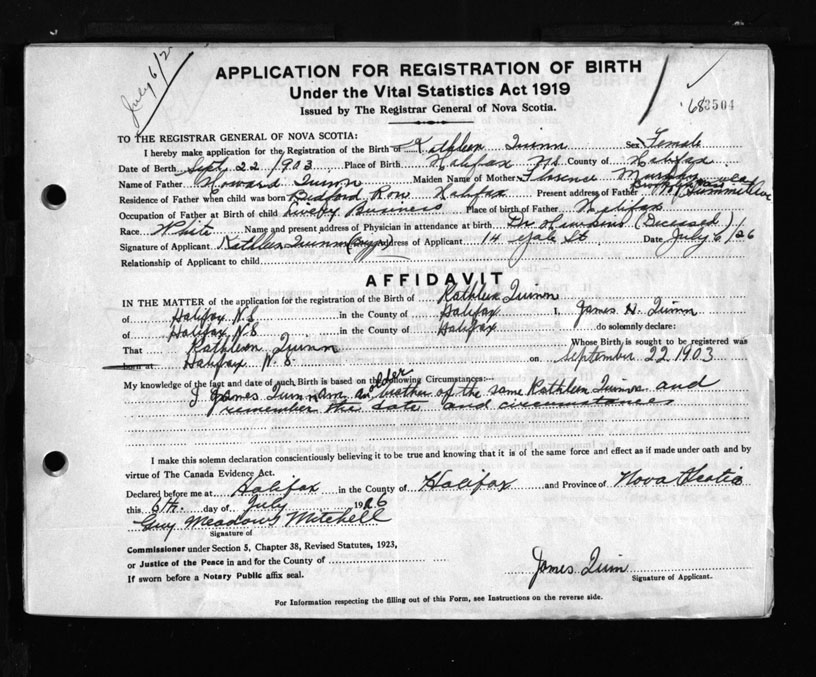 July 6/2
APPLICATION FOR REGISTRATION OF BIRTH
Under the Vital Statistics Act 1919
Issued by The Registrar General of Nova Scotia.
TO THE REGISTRAR GENERAL OF NOVA SCOTIA:
I hereby make application for the Registration of the Birth of Kathleen Quinn Sex Female
Date of Birth Sept. 22 1903 Place of Birth Halifax N.S. County of Halifax
Name of Father Howard Quinn Maiden Name of Mother Florence
Residence of Father when child was born Bedford Row Halifax Present address of Father
Occupation of Father at Birth of child Livery Business Place of birth of Father Halifax
Race White Name and present address of Physician in attendance at birth Dr (Deceased)
Signature of Applicant Kathleen Quinn Address of Applicant 14 Yale St Date July 6/26
Relationship of Applicant to child
AFFIDAVIT
IN THE MATTER of the application for the registration of the Birth of Kathleen Quinn
of Halifax N.S in the County of Halifax I, James H. Quinn
of Halifax N.S in the County of Halifax do solemnly declare:
That Kathleen Quinn Whose Birth is sought to be registered was
born at Halifax N.S. on September 22 1903
My knowledge of the fact and date of such Birth is based on the following Circumstances:—
I James Quinn am an older brother of the same Kathleen Quinn and
remember the date and circumstances
I make this solemn declaration conscientiously believing it to be true and knowing that it is of the same force and effect as if made under oath and by
virtue of The Canada Evidence Act.
Declared before me at Halifax in the County of Halifax and Province of Nova Scotia
this 6th. day of July 1926
Guy Meadows Mitchell
Signature of
Commissioner under Section 5, Chapter 38, Revised Statutes, 1923,
or Justice of the Peace in and for the County of
If sworn before a Notary Public affix seal.
James Quinn
Signature of Applicant.
For Information respecting the filling out of this Form, see Instructions on the reverse side.